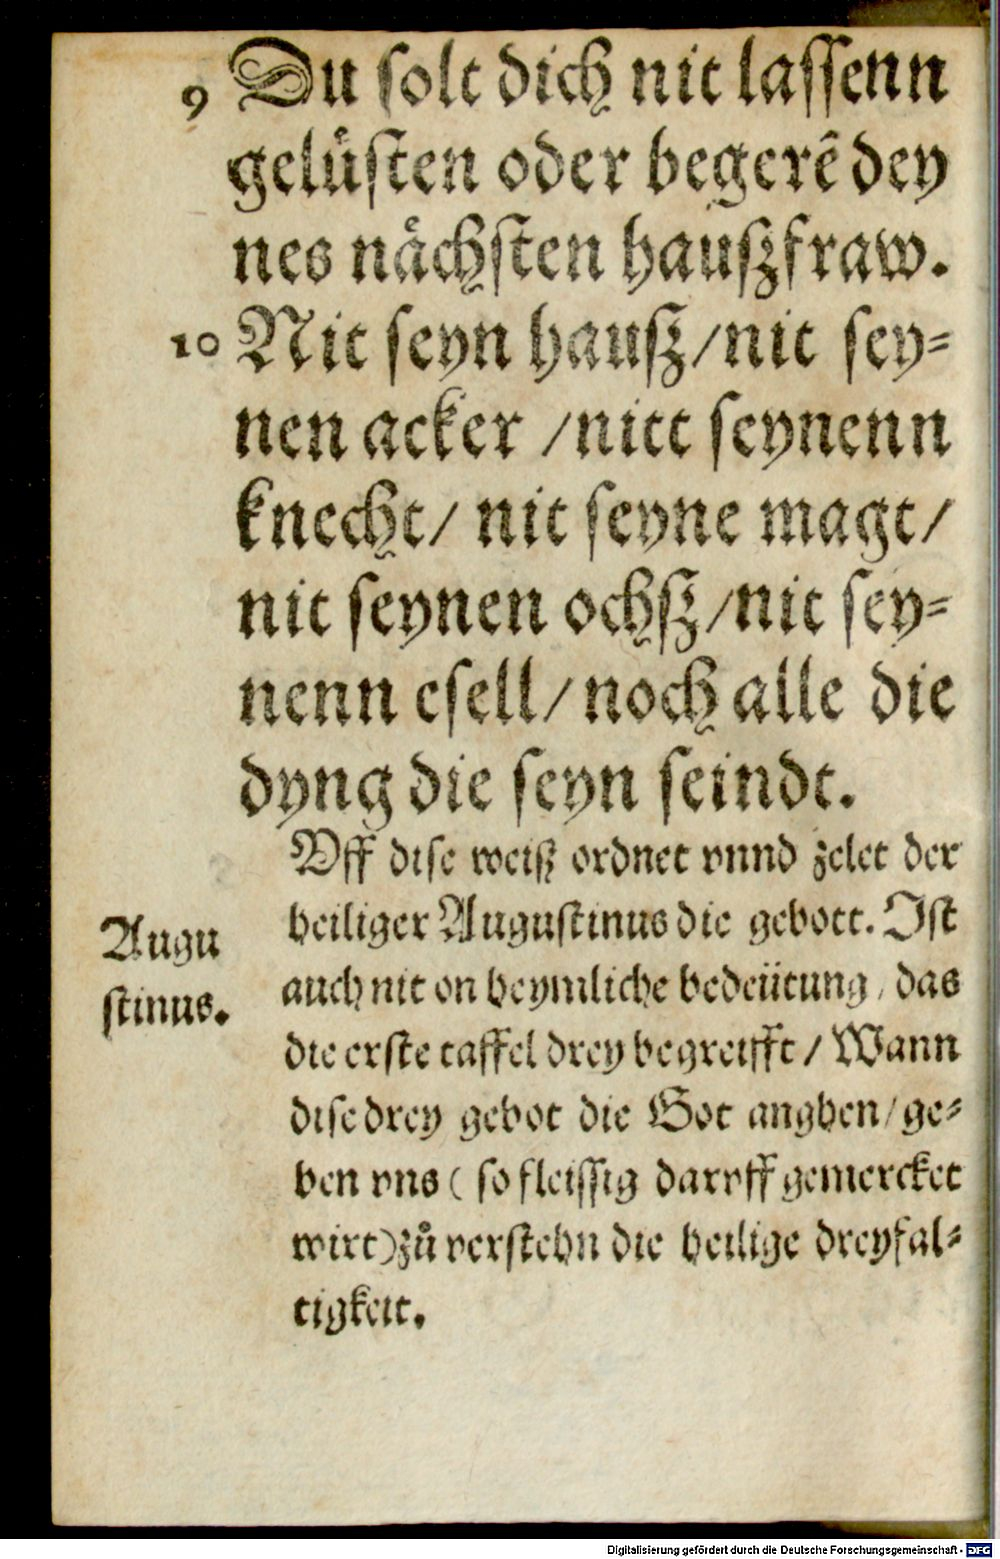 9 Du ſolt dich nit laſſenn
gelüſten oder begerē dey
nes nächſten hauſzfraw.
10 Nit ſeyn hauſz/nit ſey⸗
nen acker /nitt ſeynenn
knecht/ nit ſeyne magt/
nit ſeynen ochſz/nit ſey⸗
nenn eſell/ noch alle die
dyng die ſeyn ſeindt.
Vff diſe weiſz ordnet vnnd zelet der
heiliger Auguſtinus die gebott. Iſt
auch nit on heymliche bedeütung / das
die erſte taffel drey begreifft / Wann
diſe drey gebot die Got anghen/ ge⸗
ben vns ( ſo fleiſſig darvff gemercket
wirt) zů verſtehn die heilige dreyfal⸗
tigkeit.
Augu
ſtinus.
Digitalisierung gefördert durch die Deutsche Forschungsgemeinschaft - DFG